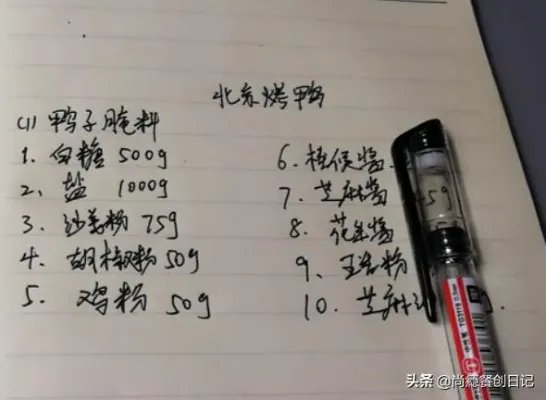 北京烤鸭
(1) 鸭子腌料
1. 白糖 500g
2、盐 1000g
3. 沙姜粉 75g
4. 胡椒粉 50g
5. 鸡粉 50g
6. 柱侯酱
7. 芝麻酱
8. 花生酱
9、五香粉
10. 芝麻
头条 @尚瘾餐创日记